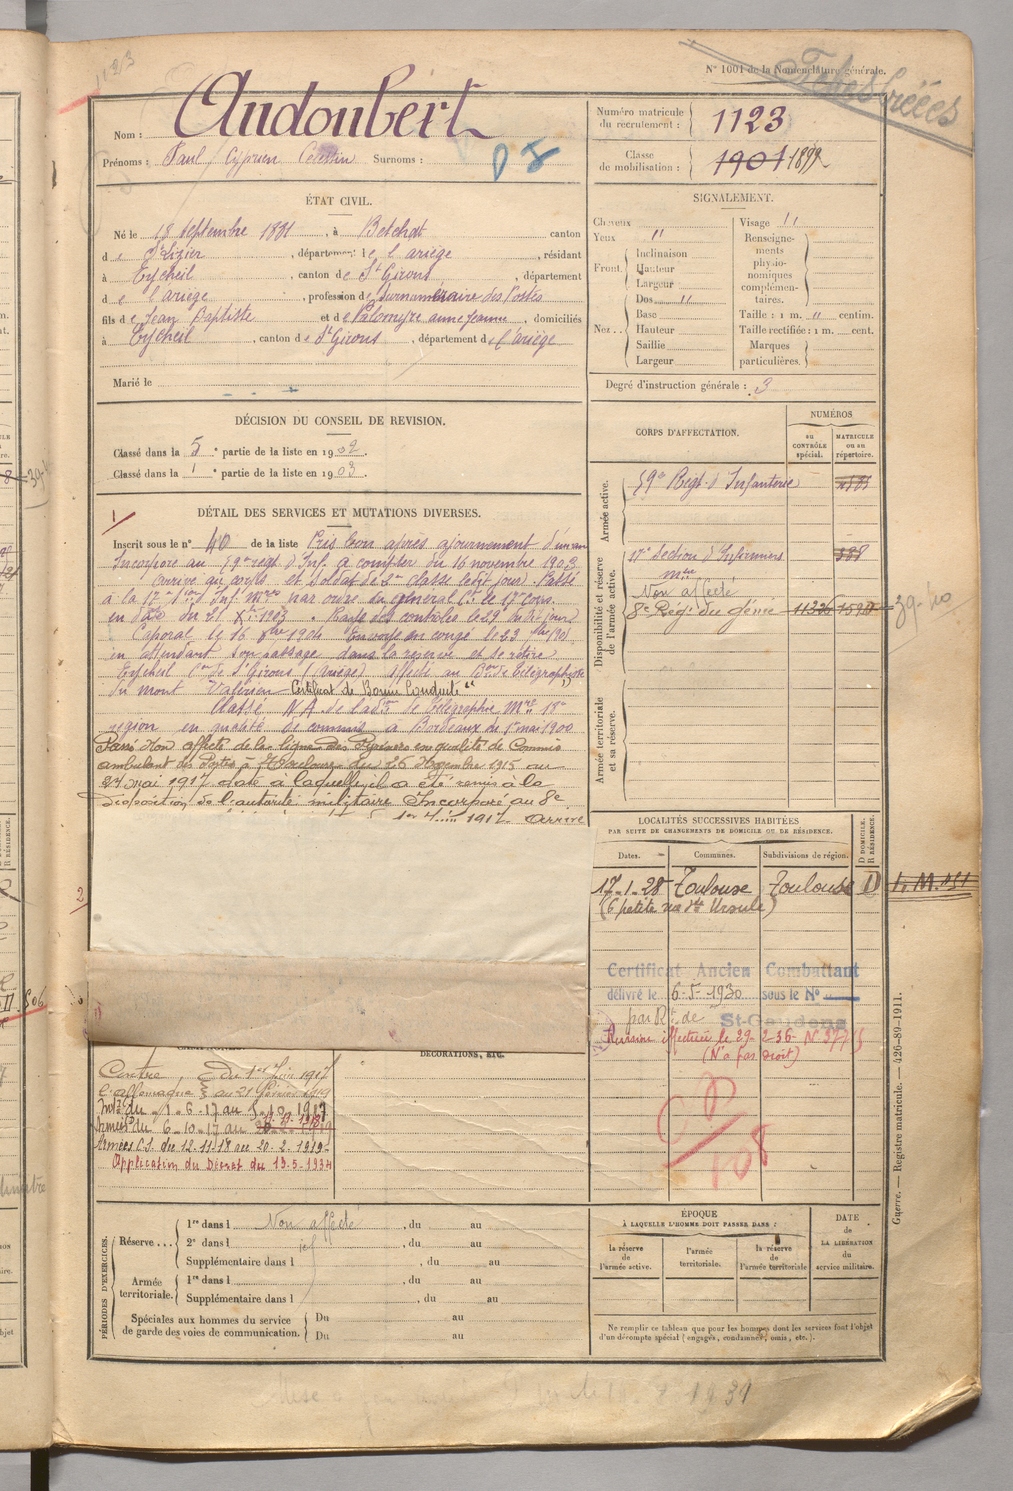 1123
N° 1001 de la Nomenclature générale.
Nom : Audoubert
Prénoms : Paul Cyprien Celestin Surnoms :
Numéro matricule du recrutement : 1123
Classe de mobilisation : 1901 1899
ÉTAT CIVIL.
Né le 18 septembre 1881, à Betchat canton
d e St Lizier, département de l'ariège, résidant
à Eycheil, canton de St Girons, département
d e l'ariège, profession de surnuméraire des Postes
fils de Jean Baptiste et de Palomyre anne Jeanne, domiciliés
à Eycheil, canton de St Girons, département de l'ariège
Marié le
SIGNALEMENT.
Cheveux
Yeux "
Front. Inclinaison
Hauteur
Largeur
Nez.. Dos "
Base
Hauteur
Saillie
Largeur
Visage "
Renseignements physionomiques complémentaires.
Taille : 1 m. " centim.
Taille rectifiée : 1 m. cent.
Marques particulières.
Degré d'instruction générale : 3
DÉCISION DU CONSEIL DE REVISION.
Classé dans la 5e partie de la liste en 1902.
Classé dans la 1e partie de la liste en 1903.
DÉTAIL DES SERVICES ET MUTATIONS DIVERSES.
Inscrit sous le n° 40 de la liste Pris bon après ajournement d'un an
Incorporé au 59e régt d'Inf. à compter du 16 novembre 1903
arrivé au corps et soldat de 2e classe ledit jour. Passé
à la 17e Son d'Inf. Mres par ordre du général Ct le 17e Corps
en date du 21 Xbre 1903. Rayé des contrôles le 29 dudit jour
Caporal le 16 1904 Envoyé en congé le 23
en attendant son passage dans la réserve et se retire
Eycheil Con de St Girons (Ariège) affecté au Bon de Télégraphistes
du mont Valérien Certificat de Bonne Conduite
Classé N.A. de la Son de Télégraphie Mre 18e
région en qualité de commis à Bordeaux du 1er mai 1900
Passé Non affecté de la ligne des Pyrénées en qualité de Commis
ambulant des Postes à Toulouse du 26 Novembre 1915 au
24 mai 1917 date à laquelle il a été remis à la
disposition de l'autorité militaire Incorporé au 8e
1917. Arrivé
CORPS D'AFFECTATION.
NUMÉROS
au CONTRÔLE spécial.
MATRICULE ou au répertoire.
Armée active.
59e Régt d'Infanterie
Disponibilité et réserve de l'armée active.
17e Section d'Infirmiers mres
Non affecté
8e Rég. du génie
Armée territoriale et sa réserve.
LOCALITÉS SUCCESSIVES HABITÉES
PAR SUITE DE CHANGEMENTS DE DOMICILE OU DE RÉSIDENCE.
Dates. Communes. Subdivisions de région. D DOMICILE. R RÉSIDENCE.
17-1-28 Toulouse Toulouse D
(6 petite rue Ste Ursule)
Certificat Ancien Combattant
délivré le 6-5-1930 sous le N°
par Rt de St-Gaudens
Révision effectuée le 29-2-36- N°
(N'a pas droit)
CAMPAGNES.
DÉCORATIONS, ETC.
Contre du 1er Juin 1917
l'allemagne au 21 février 1919
Intr du 1-6-17 au 5-10-1917
Armées du 6-10-17 au
Armées C.S. du 12-11-18 au 20-2-1919-
Application du Décret du 13-5-1934
PÉRIODES D'EXERCICES.
Réserve... 1re dans l Non affecté, du au
2e dans l, du au
Supplémentaire dans l, du au
Armée territoriale. 1re dans l, du au
Supplémentaire dans l, du au
Spéciales aux hommes du service de garde des voies de communication. Du au
Du au
ÉPOQUE
À LAQUELLE L'HOMME DOIT PASSER DANS :
la réserve de l'armée active.
l'armée territoriale.
la réserve de l'armée territoriale
DATE de LA LIBÉRATION du service militaire.
Ne remplir ce tableau que pour les hommes dont les services font l'objet
d'un décompte spécial (engagés, condamnés, omis, etc.).
Guerre. — Registre matricule. — 426-89-1911.